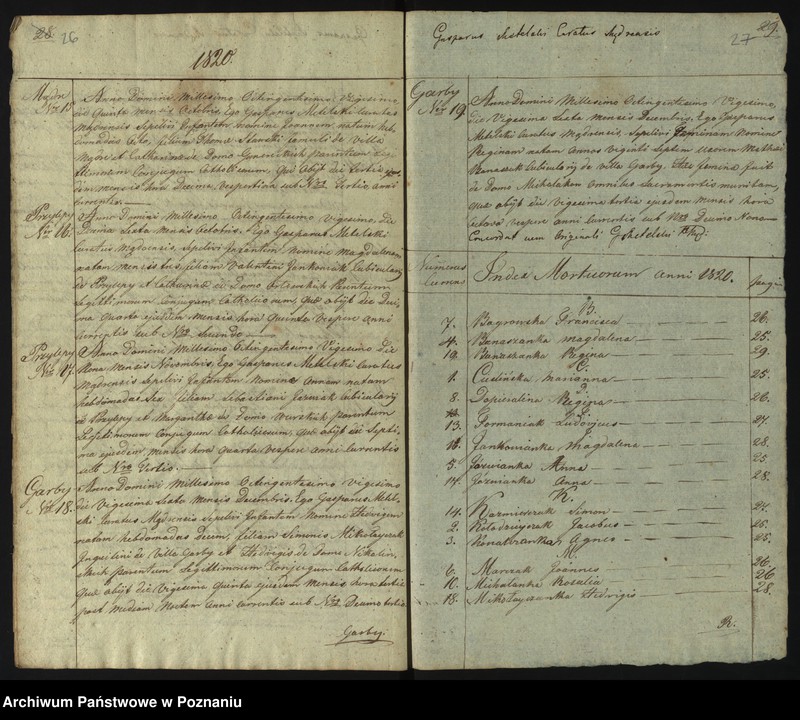 28 26
1820.
Mądre
Nro 15.
Anno Domini Millesimo Octingentesimo Vigesimo,
die Quinta mensis Octobris, Ego Gasparus Metelski Curatus
Mądrensis Sepelivi Infantem nomine Joannem natum heb
domadas Octo, filium Thoma Stanski famuli de Villa
Mądre et Catharina de Domo parentum Le
gitimorum Conjugum Catholicorum, Qui abÿt die Tertia
dem mensis hora Decima Vespertina sub Nro Tertio anni
currentis.
Przylepy
Nro 16.
Anno Domini Millesimo, Octingentesimo Vigesimo, die
Decima Sexta Mensis Octobris, Ego Gasparus Metelski
Curatus Mądrensis, Sepelivi Infantem nomine Magdalenam
natam menses tres, filiam Valentini Jankoniak Cubicularÿ
de Przylepy et Catharina de Domo Parentum
Legittimorum Conjugum Catholicorum, Quæ abÿt die Deci,
ma Quarta ejusdem Mensis hora Quinta Vespere anni
currentis sub Nro Secundo
Przylepy
Nro 17.
Anno Domini Millesimo Octingentesimo Vigesimo die
Nona Mensis Novembris, Ego Gasparus Metelski Curatus
Mądrensis Sepelivi Infantem Nomine Annam natam
hebdomadas Sex filiam Sebastiani Cubicularÿ
de Przylepy et Margaritha de Domo parentum
Legittimorum Conjugum Catholicorum, Quæ abÿt die Septi,
ma ejusdem, mensis hora Quarta Vespere anni Currentis
sub Nro Tertio.
Garby
Nro 18.
Anno Domini Millesimo Octingentesimo Vigesimo
die Vigesima Sexta Mensis Decembris. Ego Gasparus Metel,
ski Curatus Mądrensis Sepelivi Infantem Nomine Hedvigem
natam hebdomadas Decem, filiam Simonis Mikołayczak
Inquilini de Villa Garby et Hedvigis de Domo
parentum Legittimorum Conjugum Catholicorum
Quæ abÿt die Vigesima Quinta ejusdem Mensis hora tertia
post Mediam Noctem Anni Currentis sub Nro Decimo tertio
Garby.
Gasparus Metelski Curatus Mądrensis
29. 27
Garby
Nro 19.
Anno Domini Millesimo Octingentesimo Vigesimo,
die Vigesima Sexta Mensis Decembris, Ego Gasparus
Metelski Curatus Mądrensis, Sepelivi Feminam Nomine
Reginam natam Annos Viginti Septem Uxorem Mathæi
Banaszak Cubicularÿ de Villa Garby. Hæc femina fuit
de Domo Michalakow Omnibus Sacramentis munitam,
Quæ abÿt die Vigesima tertia ejusdem Mensis hora
Octava Vespere anni Currentis sub Nro Decimo Nono
Concordat cum Originali G Metelski
Numerus
Index Mortuorum anni 1820.
B.
7. Bagrowska Francisca 26.
4. Banaszanka Magdalena 25.
19. Banaszka Regina 29.
C.
1. Cielińska Marianna 25.
D.
8. Dopieralina Regina 26.
F.
13. Formaniak Ludovicus 27.
J.
16. Jankonianka Magdalena 28.
5. Józwianka Anna 25
17. Anna 28.
K.
14. Kazmierczak Simon 27.
2. Kołodzieyczak Jacobus 25.
3. Agnes 25.
M.
6. Marczak Joannes 26.
10. Michalanka Rosalia 26
18. Mikołayczanka Hedvigis 28.
R.